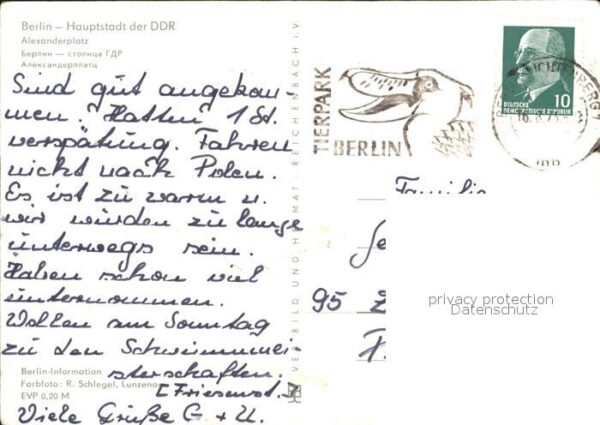 Berlin – Hauptstadt der DDR
Alexanderplatz
Берлин — столица ГДР
Александерплатц
Sind gut angekom-
men. Hatten 1 St.
verspätung. Fahren
nicht nach Polen.
Es ist zu warm u.
wir würden zu lange
unterwegs sein.
Haben schon viel
unternommen.
Wollen am Sonntag
zu den Schwimmmei-
sterschaften.
[Friesenst.]
Viele Grüße G + U.
Berlin-Information
Farbfoto: R. Schlegel, Lunzenau
EVP 0,20 M
VERLAG BILD UND HEIMAT REICHENBACH i. V.
TIERPARK
BERLIN
DEUTSCHE
DEMOKRATISCHE REPUBLIK
10
Familie
95
privacy protection
Datenschutz